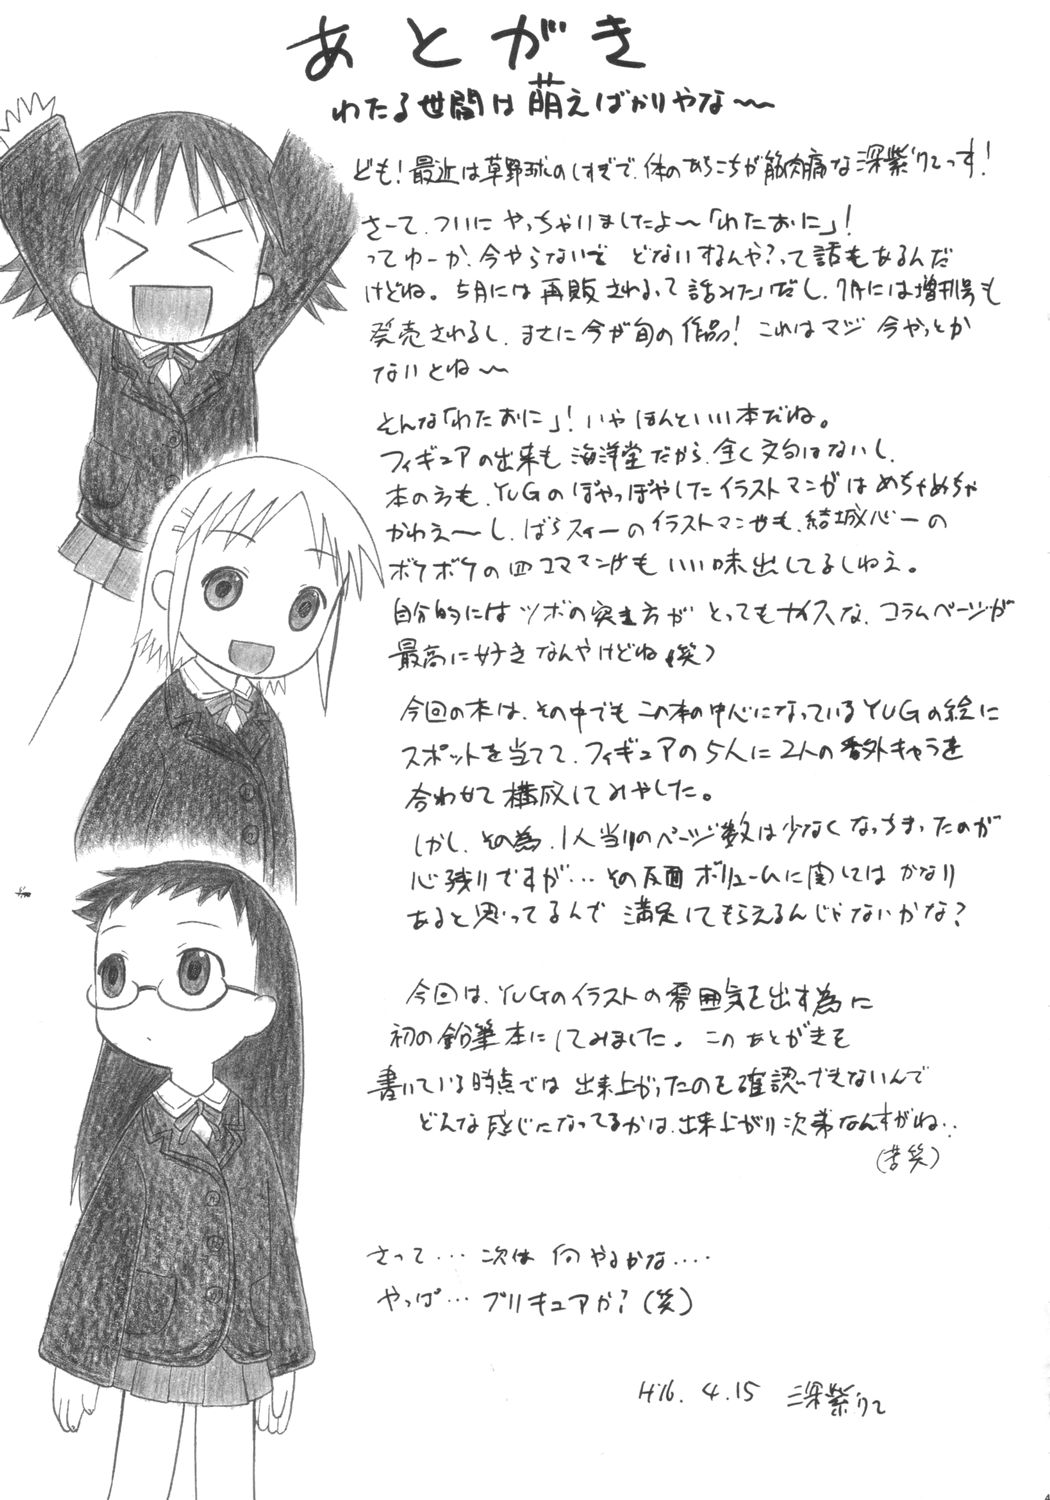 あとがき
わたる世間は萌えばかりやな〜
ども!最近は草野球のしすぎで、体のあちこちが筋肉痛な深紫りてっす!
さーて、ついにやっちゃいましたよ〜「わたおに」!
ってゆーか、今やらないでどないするんや?って話もあるんだ
けどね。5月には再販されるって話みたいだし、7月には増刊号も
発売されるし、まさに今が旬の作品!これはマジ今やっとか
ないとね〜
そんな「わたおに」!いやほんといい本だね。
フィギュアの出来も海洋堂だから、全く文句はないし、
本のうも、YUGのぽやっぽやしたイラストマンガはめちゃめちゃ
かわえ〜し、ばらスィーのイラストマンガも、結城心一の
ボケボケの四コママンガもいい味出してるしねえ。
自分的にはツボの突き方がとってもナイスな、コラムページが
最高に好きなんやけどね(笑)
今回の本は、その中でもこの本の中心になっているYUGの絵に
スポットを当てて、フィギュアの5人に2人の番外キャラを
合わせて構成してみやした。
しかし、その為、1人当りのページ数は少なくなっちまったのが
心残りですが…その反面ボリュームに関してはかなり
あると思ってるんで満足してもらえるんじゃないかな?
今回は、YUGのイラストの雰囲気を出す為に
初の鉛筆本にしてみました。このあとがきを
書いている時点では出来上がったのを確認できないんで
どんな感じになってるかは、出来上がり次第なんすがね‥
(苦笑)
さって…次は何やるかな‥‥
やっぱ…プリキュアか?(笑)
H16. 4.15 深紫りて
4